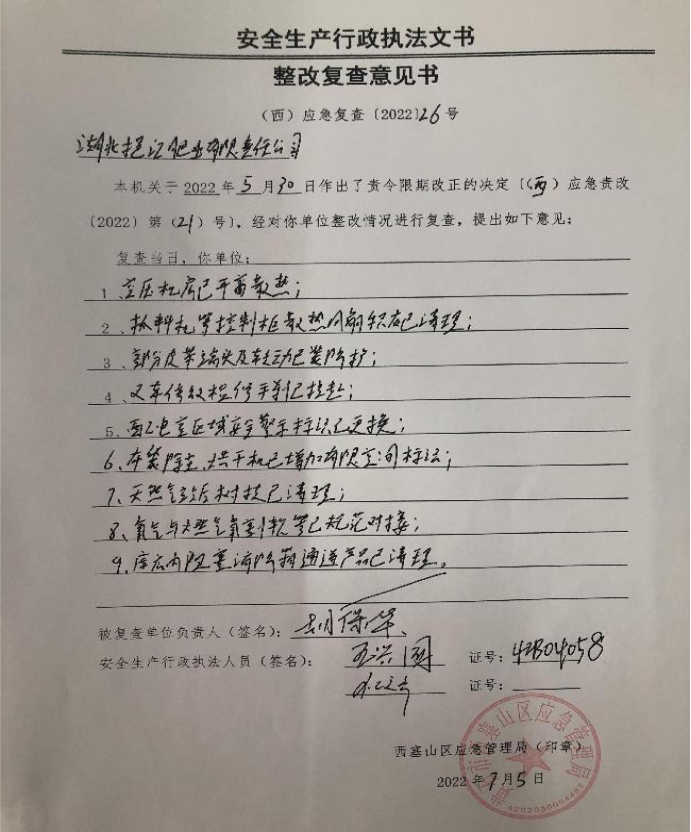 安全生产行政执法文书
整改复查意见书
（西）应急复查〔2022〕26号
湖北 肥业有限责任公司
本机关于 2022 年 5 月 30 日作出了责令限期改正的决定〔（西）应急责改
〔2022〕第（21）号〕，经对你单位整改情况进行复查，提出如下意见：
复查当日，你单位：
1、空压机房已开窗散热；
2、 控制柜散热 已清理；
3、部分皮带 已装防护；
4、叉车
5、配电室区域安全警示标识已更换；
6、布袋除尘、烘干机已增加有限空间标识；
7、天然气 树枝已清理；
8、氧气与天然气 软管已规范对接；
9、库房内阻塞消防 通道产品已清理。
被复查单位负责人（签名）： 胡保华
安全生产行政执法人员（签名）： 王兴国 证号：42B04058
证号：
西塞山区应急管理局（印章）
2022 年 7 月 5 日
西塞山区应急管理局